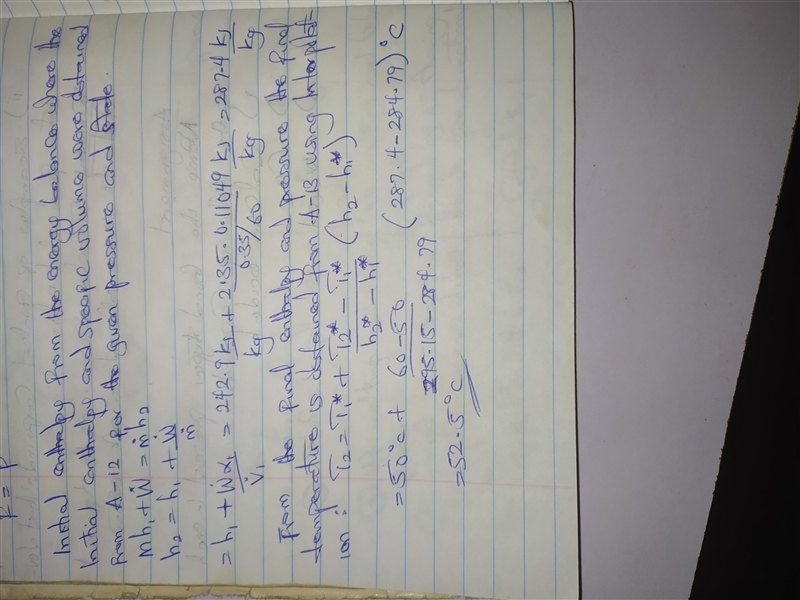 Initial enthalpy from the energy balance where the
Initial enthalpy and specific volume were obtained
from A-12 for the given pressure and state.
ṁh₁ + Ẇ = ṁh₂
h₂ = h₁ + Ẇ/ṁ
= h₁ + Ẇα₁/V̇₁ = 242.9 kJ/kg + 2.35·0.11049/0.35/60 kJ/kg = 287.4 kJ/kg
From the final enthalpy and pressure the final
temperature is obtained from A-13 using interpolat-
ion: T₂ = T₁* + T₂* - T₁*/h₂* - h₁* (h₂ - h₁*)
= 50°C + 60-50/295.15-284.79 (287.4-284.79)°C
= 52.5°C